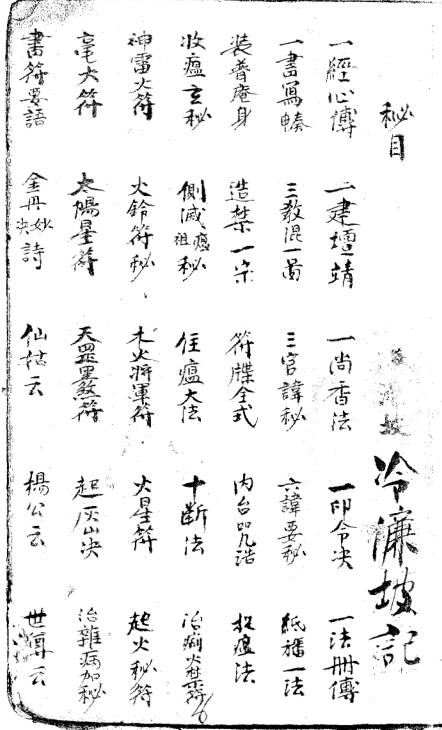 秘目
冷廉坡記
一經心傳 一建壇靖 一尚香法 一印令决 一法冊傳
一書寫 三教混一 三官諱秘 六諱要秘 紙旛一法
裝普庵身 造禁一宗 符牒全式 內台咒誥 捉瘟法
收瘟玄秘 側滅瘟祖秘 住瘟大法 十断法 治
神雷火符 火鈴符秘 木火將軍符 火星符 起火秘符
毫火符 太陽星符 天罡黑煞符 起灰山决 治雜病加秘
書符要語 金丹妙决詩 仙姑云 楊公云 世傳云